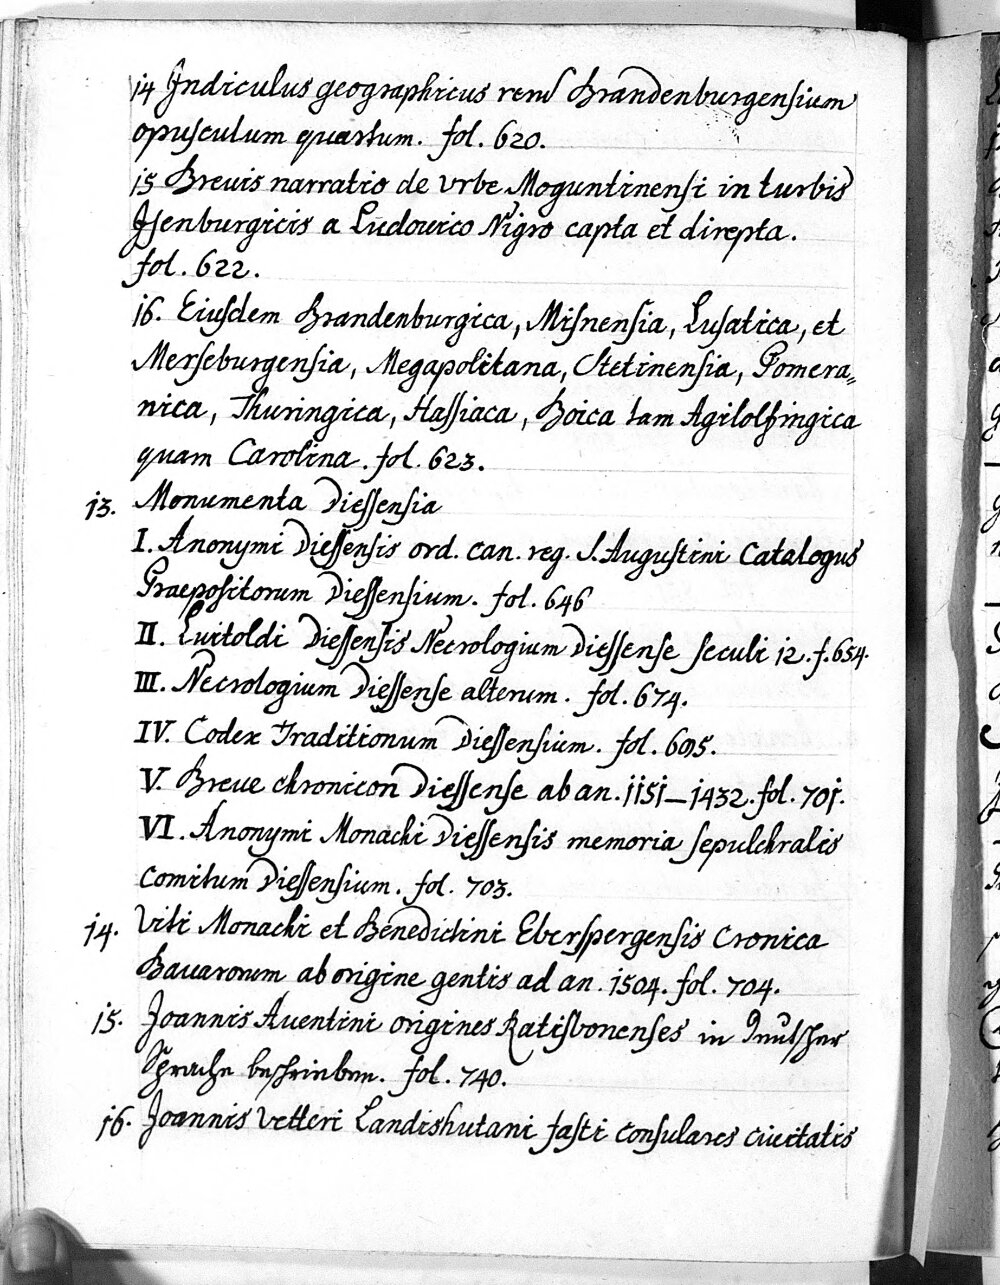 14 Indiculus geographicus rerū Brandenburgensium
opusculum quartum. fol. 620.
15 Breuis narratio de vrbe Moguntinensi in turbis
Isenburgicis a Ludouico Nigro capta et direpta.
fol. 622.
16. Eiusdem Brandenburgica, Misnensia, Lusatica, et
Merseburgensia, Megapolitana, Stetinensia, Pomera„
nica, Thuringica, Hassiaca, Boica tam Agilolfingica
quam Carolina. fol. 623.
13. Monumenta Diessensia
I. Anonymi Diessensis ord. can. reg. S. Augustini Catalogus
Praepositorum Diessensium. fol. 646
II. Luitoldi Diessensis Necrologium Diessense seculi 12. f. 654.
III. Necrologium Diessense alterum. fol. 674.
IV. Codex Traditionum Diessensium. fol. 695.
V. Breue chronicon Diessense ab an. 1151–1432. fol. 701.
VI. Anonymi Monachi Diessensis memoria sepulchralis
Comitum Diessensium. fol. 703.
14. Viti Monachi et Benedictini Eberspergensis Cronica
Bauarorum ab origine gentis ad an. 1504. fol. 704.
15. Joannis Auentini origines Ratisbonenses in Deutscher
Sprache beschrieben. fol. 740.
16. Joannis Vetteri Landishutani fasti consulares ciuitatis